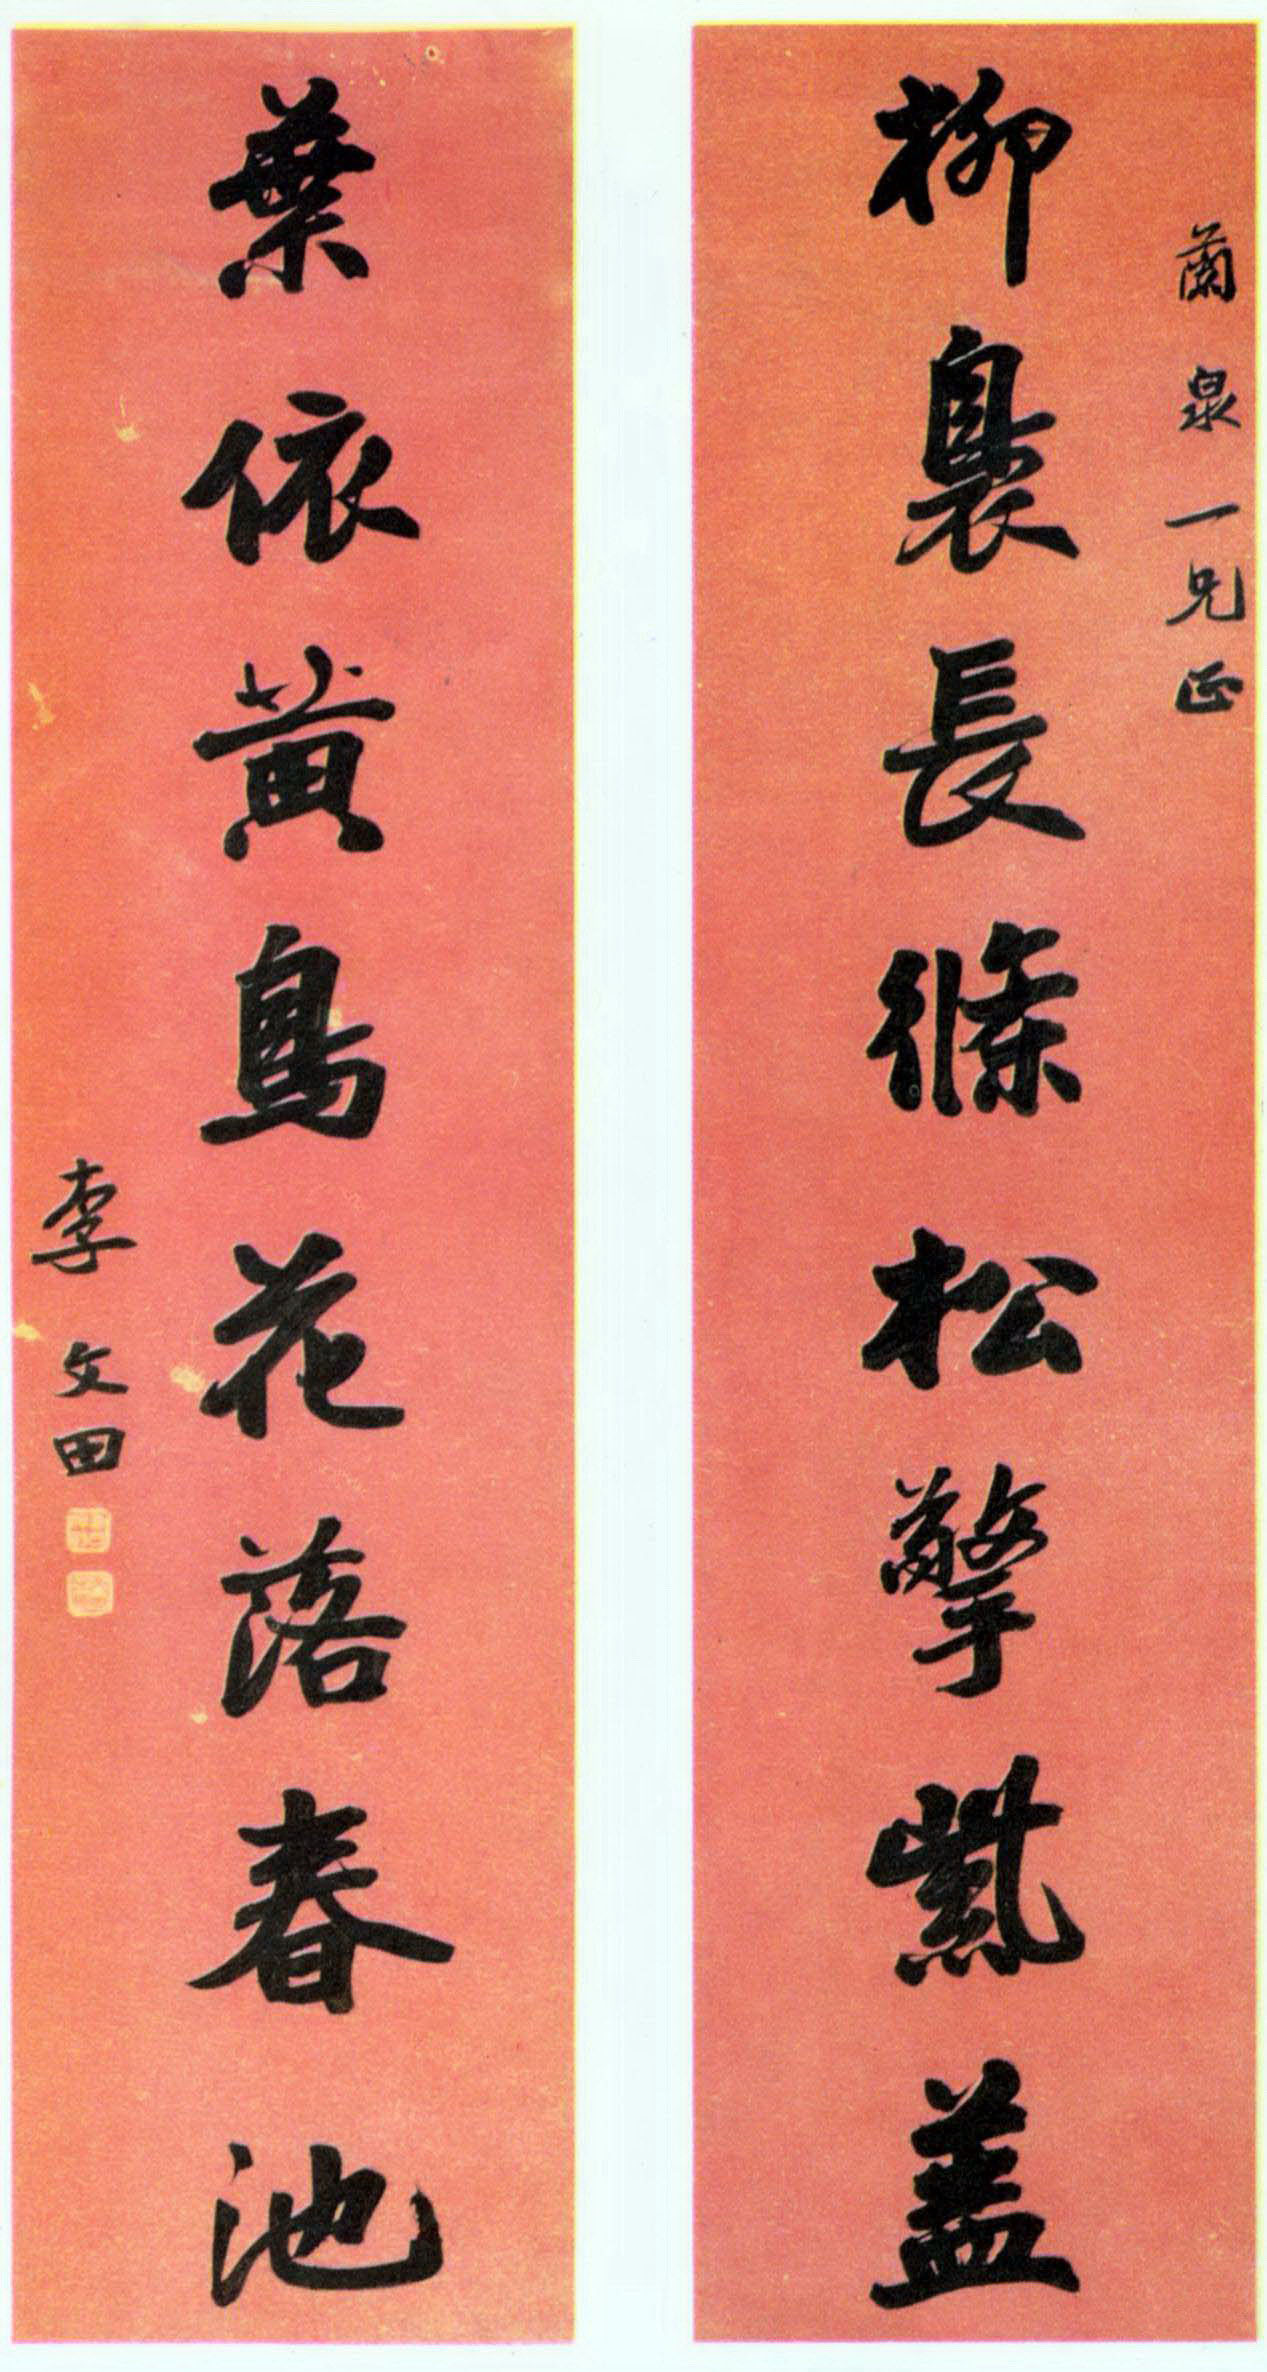 蘭泉一兄正
柳裊長條松擎紫蓋
葉依黃鳥花落春池
李文田